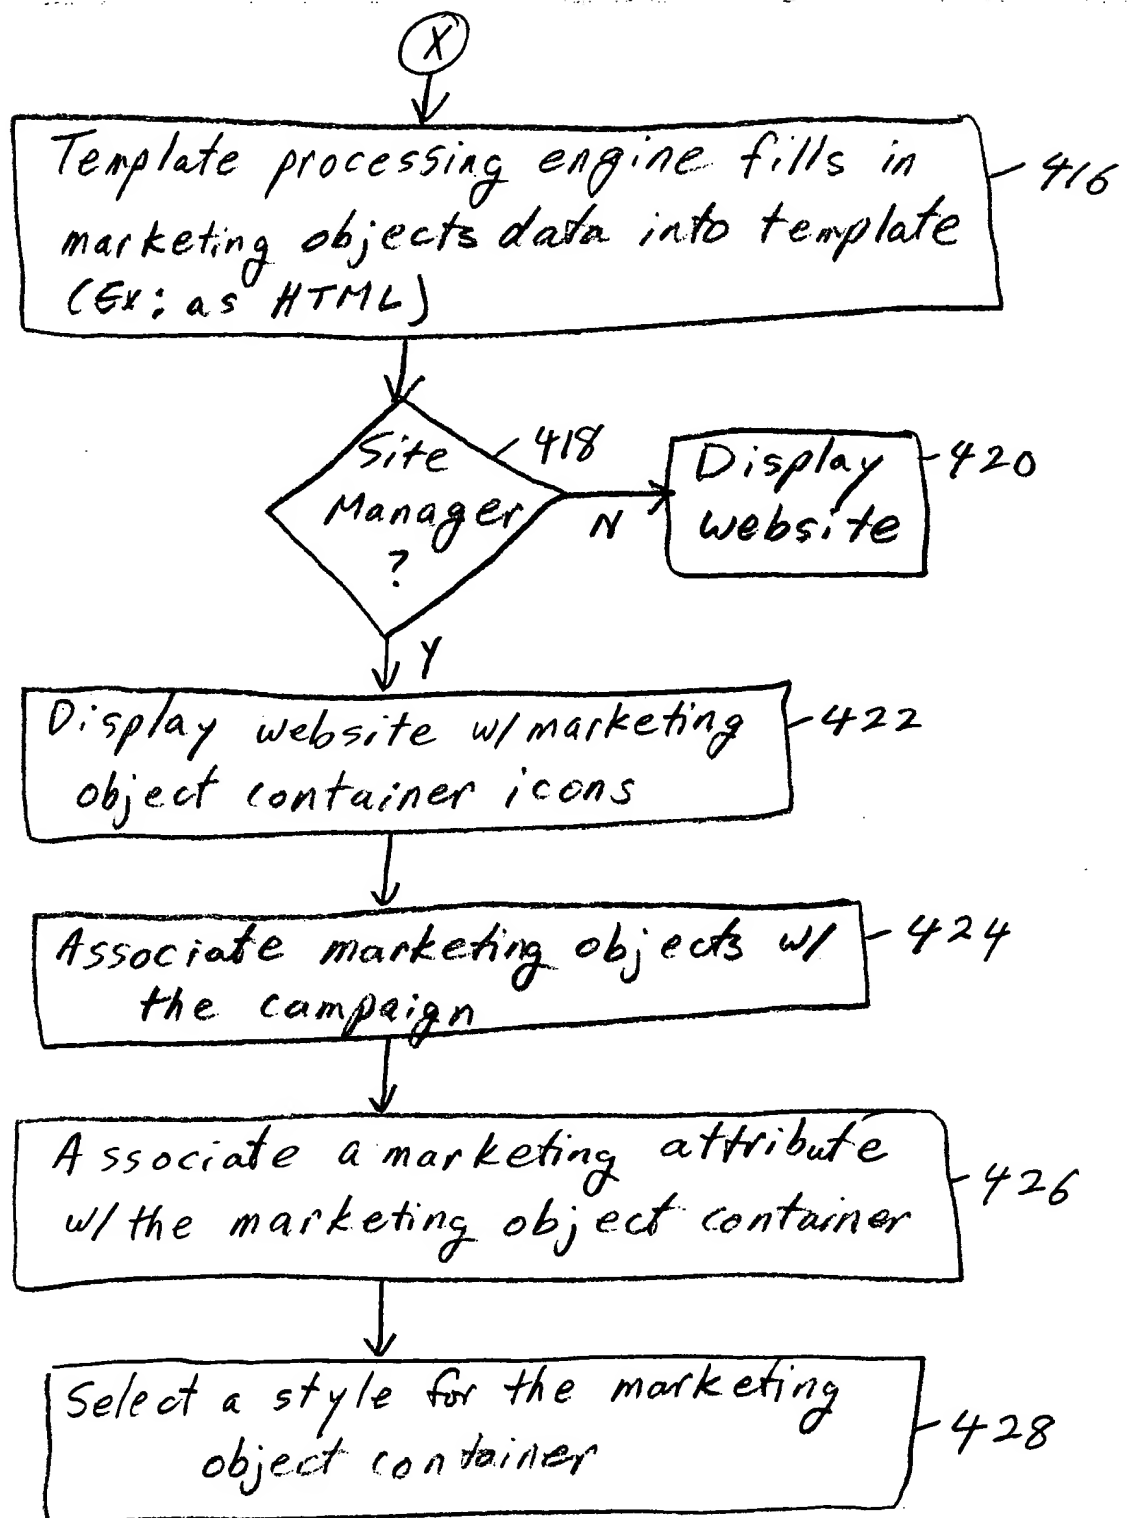 X
Template processing engine fills in
416
marketing objects data into template
(Ex: as HTML)
Site
Manager
?
418
N
Display
website
420
Y
Display website w/marketing
object container icons
422
Associate marketing objects w/
the campaign
424
Associate a marketing attribute
w/the marketing object container
426
Select a style for the marketing
object container
428